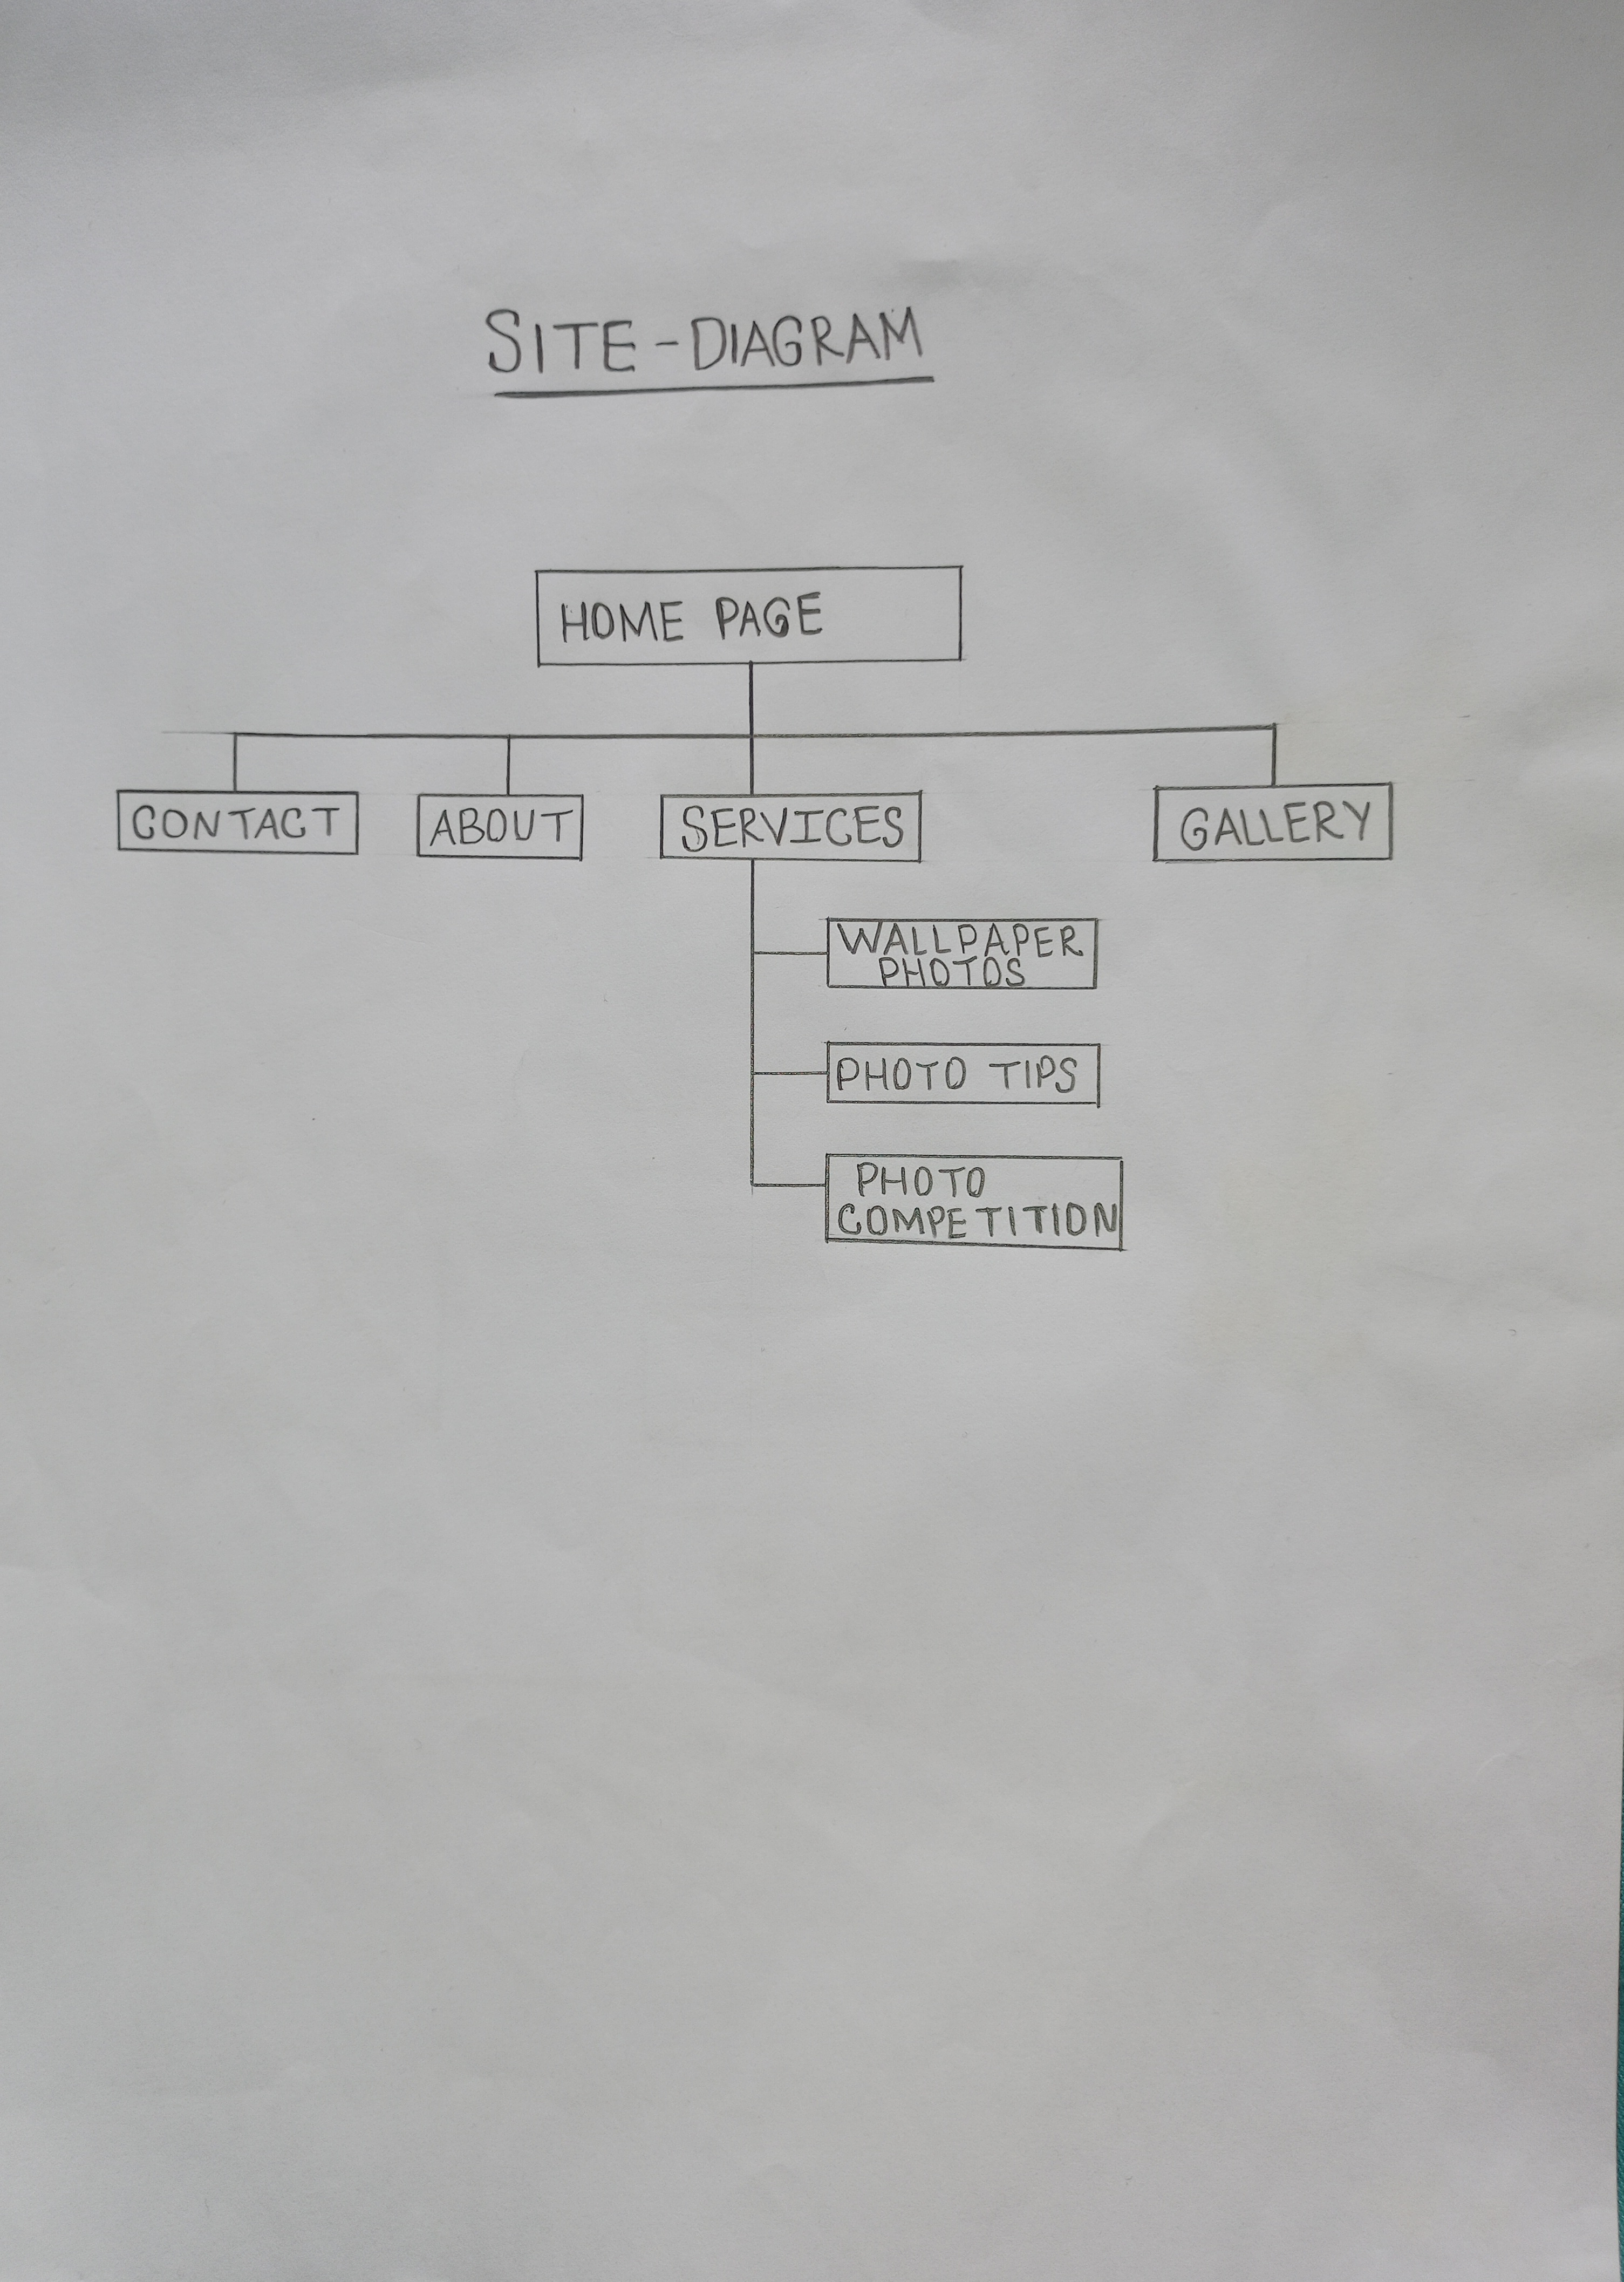 SITE-DIAGRAM
HOME PAGE
CONTACT
ABOUT
SERVICES
GALLERY
WALLPAPER
PHOTOS
PHOTO TIPS
PHOTO
COMPETITION